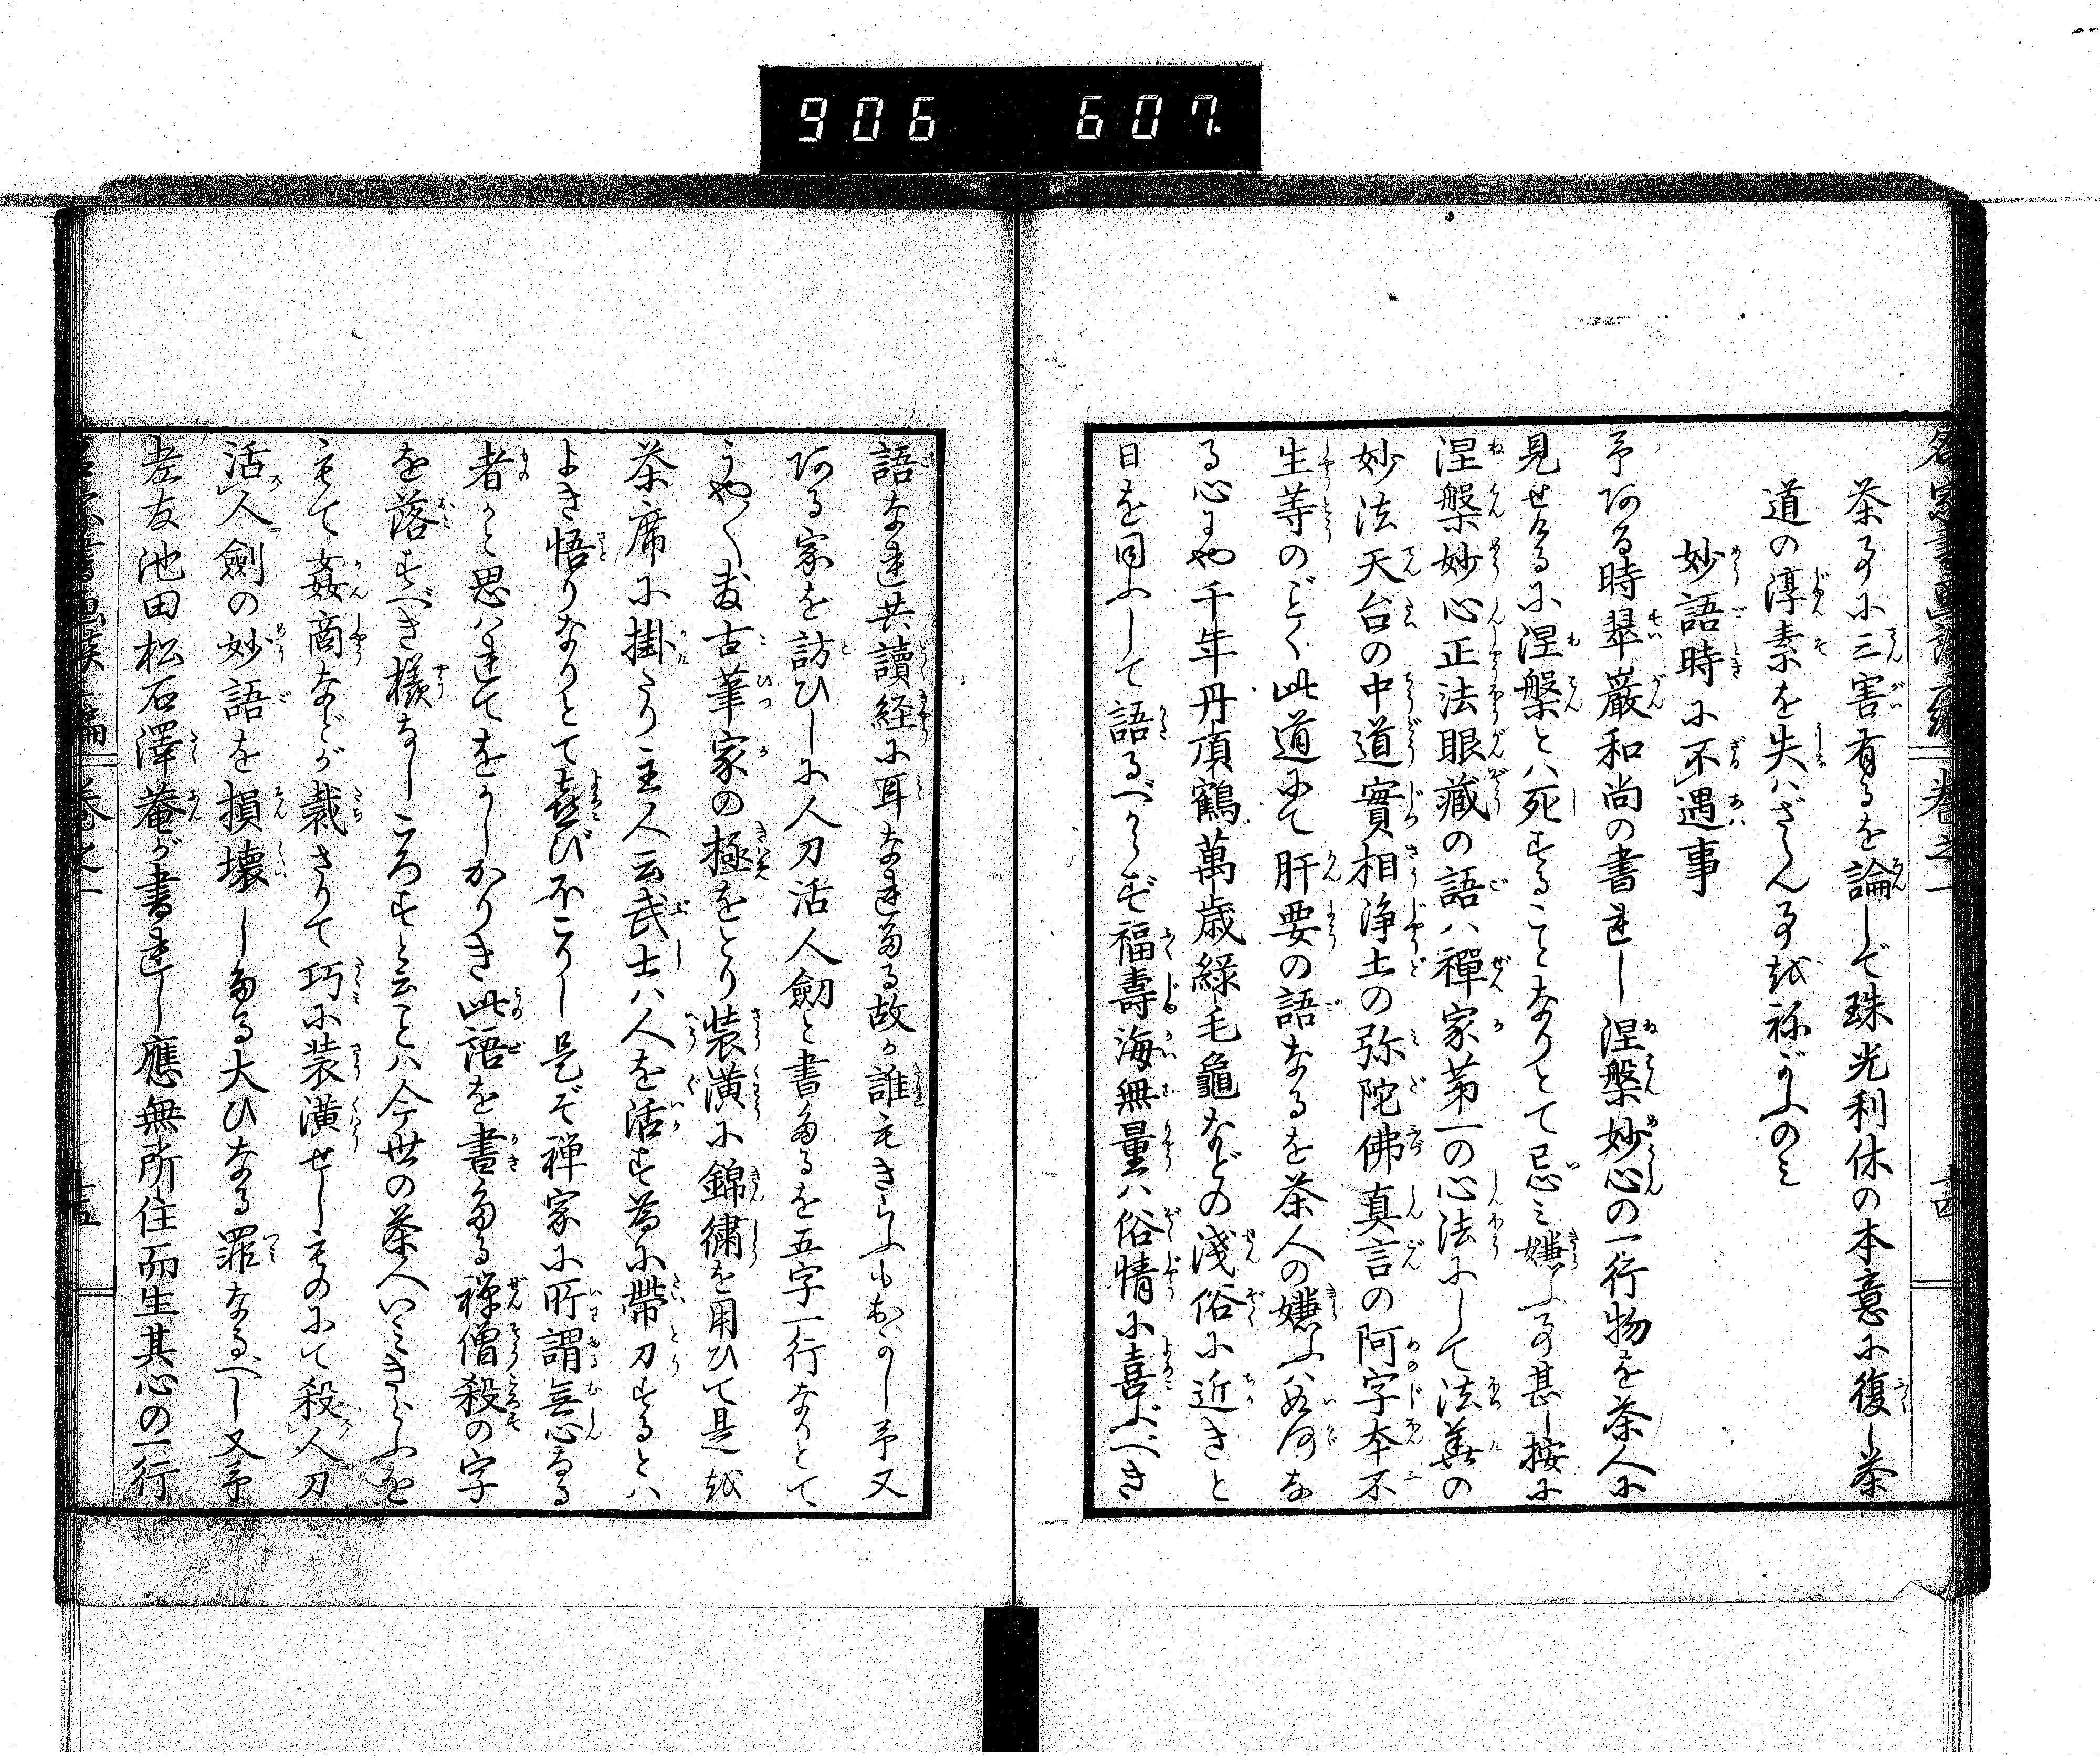 906 607
茶事に三害有るを論じて珠光利休の本意に復し茶
道の淳素を失はざらん事を祢がふのミ
妙語時に不遇事
予ある時翠巖和尚の書れし涅槃妙心の一行物を茶人に
見せけるに涅槃とハ死することなりとて忌ミ嫌ふ事甚し按に
涅槃妙心正法眼蔵の語ハ禪家第一の心法にして法華の
妙法天台の中道實相浄土の弥陀佛真言の阿字本不
生等のごとく此道にて肝要の語なるを茶人の嫌ふハ如何な
る心にや千年丹頂鶴萬歳緑毛龜などの淺俗に近きと
日を同ふして語るべからず福壽海無量ハ俗情に喜ぶべき
語なれ共讀経に耳なれたる故か誰もきらふもおかし予又
ある家を訪ひしに人刀活人劔と書たるを五字一行なりとて
うや〳〵敷古筆家の極をとり装潢に錦繍を用ひて是を
茶席に掛たり主人云武士ハ人を活す為に帯刀するとハ
よき悟りなりとて喜び不こりし是ぞ禅家に所謂無心なる
者かと思ハれてをかしかりき此語を書たる禅僧殺の字
を落すべき様なしころすと云ことハ今世の茶人いミきらふを
もて姦商などが裁さりて巧に装潢せしものにて殺人刀
活人劍の妙語を損壊したる大ひなる罪なるべし又予
老友池田松石澤菴が書れし應無所住而生其心の一行